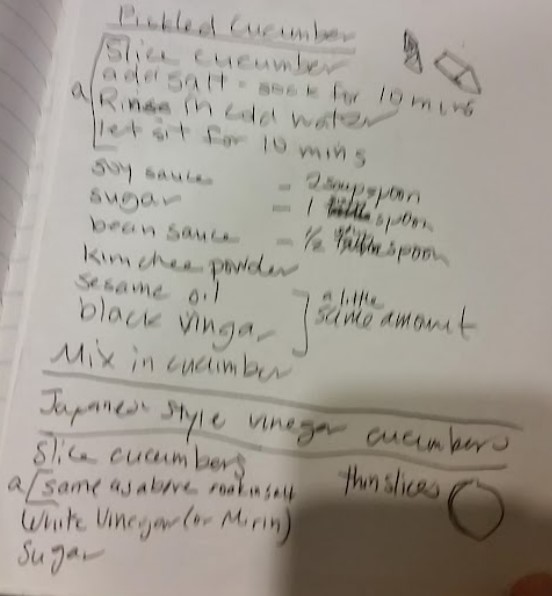 Pickled Cucumber
Slice cucumber
add salt - soak for 10 mins
a Rinse in cold water
let sit for 10 mins
soy sauce = 2 soupspoon
sugar = 1 spoon
bean sauce = 1/2 spoon
kimchee powder
sesame oil a little
black vinegar same amount
Mix in cucumber
Japanese Style vinegar cucumbers
Slice cucumbers
a same as above soak in salt thin slices
White Vinegar (or Mirin)
Sugar